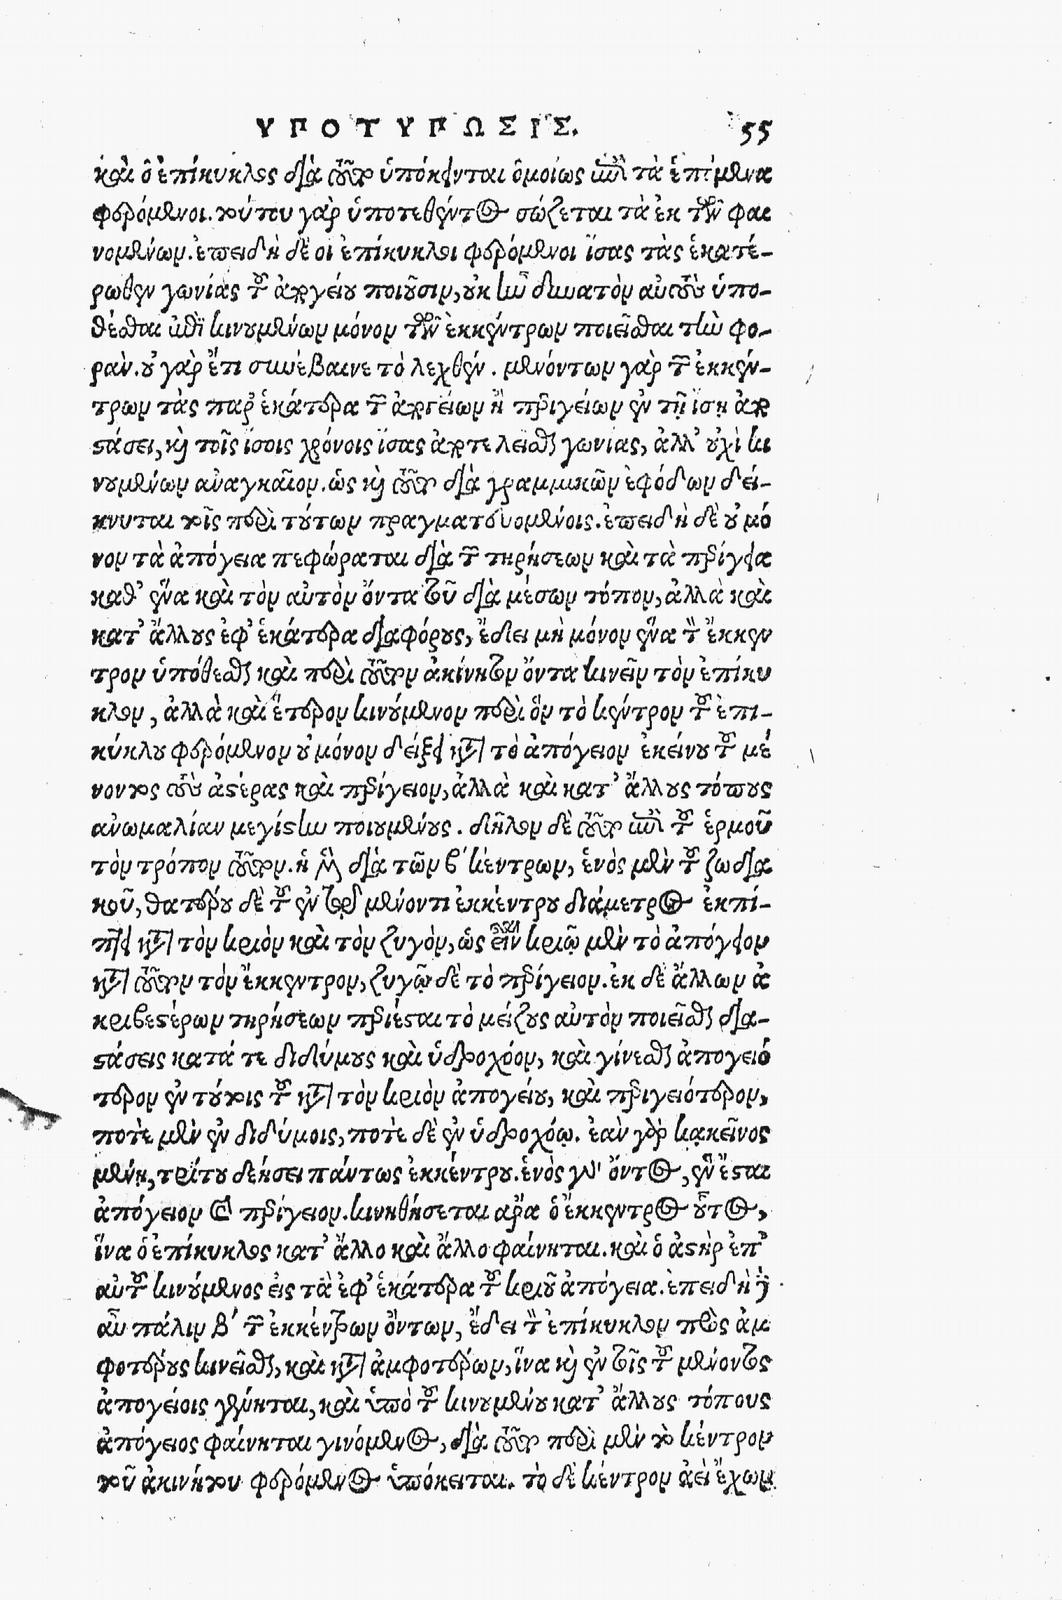 ΥΠΟΤΥΠΩΣΙΣ. 55
καὶ ὁ ἐπίκυκλος διὰ τοῦτο ὑπόκεινται ὁμοίως ἐπὶ τὰ ἑπόμενα
φερόμενοι. τούτου γὰρ ὑποτεθέντος σώζεται τὰ ἐκ τῶν φαι
νομένων. ἐπειδὴ δὲ οἱ ἐπίκυκλοι φερόμενοι ἴσας τὰς ἑκατέ-
ρωθεν γωνίας τοῦ ἀπογείου ποιοῦσιν, οὐκ ἦν δυνατὸν αὐτοὺς ὑπο-
θέσθαι ἐπὶ κινουμένων μόνον τῶν ἐκκέντρων ποιεῖσθαι τὴν φο-
ράν. οὐ γὰρ ἔτι συνέβαινε τὸ λεχθέν. μενόντων γὰρ τῶν ἐκκέν-
τρων τὰς παρ' ἑκάτερα τῶν ἀπογείων ἢ περιγείων ἐν τῇ ἴσῃ ἀπο
στάσει, καὶ τοῖς ἴσοις χρόνοις ἴσας ἀποτελεῖσθαι γωνίας, ἀλλ' οὐχὶ κι
νουμένων ἀναγκαῖον. ὡς καὶ τοῦτο διὰ γραμμικῶν ἐφόδων δεί-
κνυται τοῖς περὶ τούτων πραγματευομένοις. ἐπειδὴ δὲ οὐ μό
νον τὰ ἀπόγεια πεφώραται διὰ τῶν τηρήσεων καὶ τὰ περίγεια
καθ' ἕνα καὶ τὸν αὐτὸν ὄντα τοῦ διὰ μέσων τόπον, ἀλλὰ καὶ
κατ' ἄλλους ἐφ' ἑκάτερα διαφόρους, ἔδει μὴ μόνον ἕνα τὸν ἔκκεν
τρον ὑπόθεσθαι καὶ περὶ τοῦτον ἀκίνητον ὄντα κινεῖν τὸν ἐπίκυ
κλον, ἀλλὰ καὶ ἕτερον κινούμενον περὶ ὃν τὸ κέντρον τοῦ ἐπι-
κύκλου φερόμενον οὐ μόνον δείξει κατὰ τὸ ἀπόγειον ἐκείνου τοῦ μέ
νοντος τοὺς ἀστέρας καὶ περίγειον, ἀλλὰ καὶ κατ' ἄλλους τόπους
ἀνωμαλίαν μεγίστην ποιουμένους. δῆλον δὲ τοῦτο ἐπὶ τοῦ ἑρμοῦ
τὸν τρόπον τοῦτον. ἡ μὲν διὰ τῶν β' κέντρων, ἑνὸς μὲν τοῦ ζωδια
κοῦ, θατέρου δὲ τοῦ ἐν αὐτῷ μένοντι ἐκκέντρου διάμετρος ἐκπί-
πτει κατὰ τὸν κριὸν καὶ τὸν ζυγὸν, ὡς εἶναι ἐν κριῷ μὲν τὸ ἀπόγειον
κατὰ τοῦτον τὸν ἔκκεντρον, ζυγῷ δὲ τὸ περίγειον. ἐκ δὲ ἄλλων ἀ
κριβεστέρων τηρήσεων περιέσται τὸ μείζους αὐτὸν ποιεῖσθαι δια-
στάσεις κατά τε διδύμους καὶ ὑδροχόον, καὶ γίνεσθαι ἀπογειό
τερον ἐν τούτοις τοῦ κατὰ τὸν κριὸν ἀπογείου, καὶ περιγειότερον,
ποτὲ μὲν ἐν διδύμοις, ποτὲ δὲ ἐν ὑδροχόῳ. ἐὰν γὰρ κἀκεῖνος
μένῃ, τρίτου δεήσει πάντως ἐκκέντρου. ἑνὸς γὰρ ὄντος, ἕν ἔσται
ἀπόγειον καὶ περίγειον. κινηθήσεται ἄρα ὁ ἔκκεντρος οὗτος,
ἵνα ὁ ἐπίκυκλος κατ' ἄλλο καὶ ἄλλο φαίνηται. καὶ ὁ ἀστὴρ ἐπ'
αὐτοῦ κινούμενος εἰς τὰ ἐφ' ἑκάτερα τοῦ κριοῦ ἀπόγεια. ἐπειδὴ δὲ
αὖ πάλιν β' τῶν ἐκκέντρων ὄντων, ἔδει τὸν ἐπίκυκλον πρὸς ἀμ
φοτέρους κινεῖσθαι, καὶ κατὰ ἀμφοτέρων, ἵνα καὶ ἐν τοῖς τοῦ μένοντος
ἀπογείοις γένηται, καὶ ὑπὸ τοῦ κινουμένου κατ' ἄλλους τόπους
ἀπόγειος φαίνηται γινόμενος, διὰ τοῦτο περὶ μὲν τὸ κέντρον
τοῦ ἀκινήτου φερόμενος ὑπόκειται. τὸ δὲ κέντρον ἀεὶ ἔχων